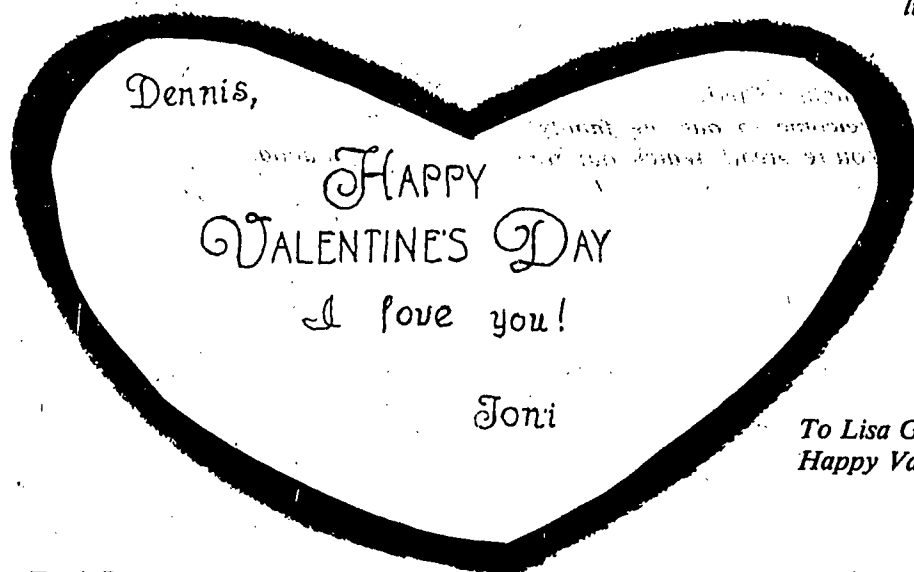 Dennis,
HAPPY
VALENTINE'S DAY
I love you!
Joni
To Lisa G
Happy Va